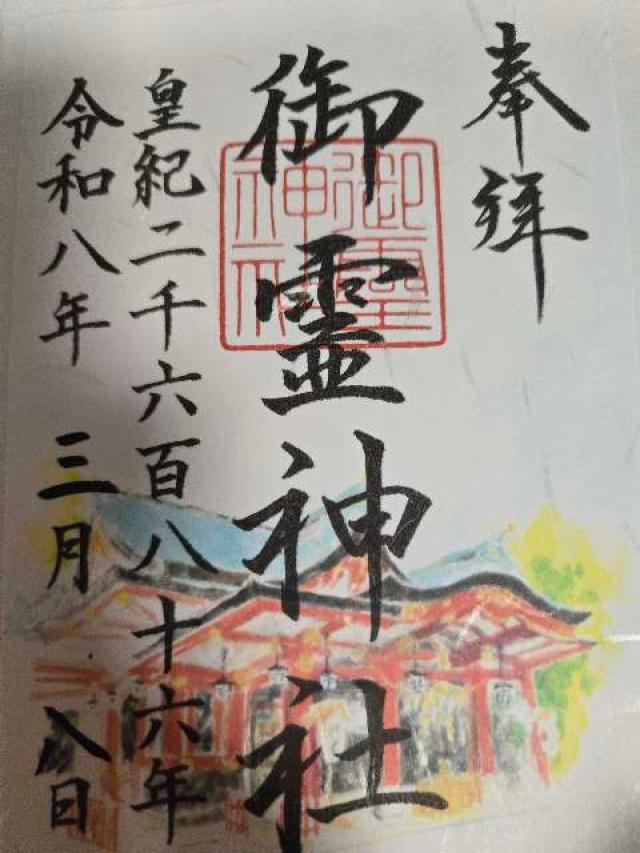 奉拝
御靈神社
御靈神社
皇紀二千六百八十六年
令和八年 三月 八日